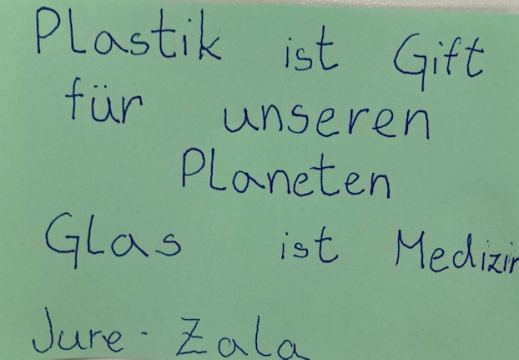 Plastik ist Gift
für unseren
Planeten
Glas ist Medizin
Jure - Zala